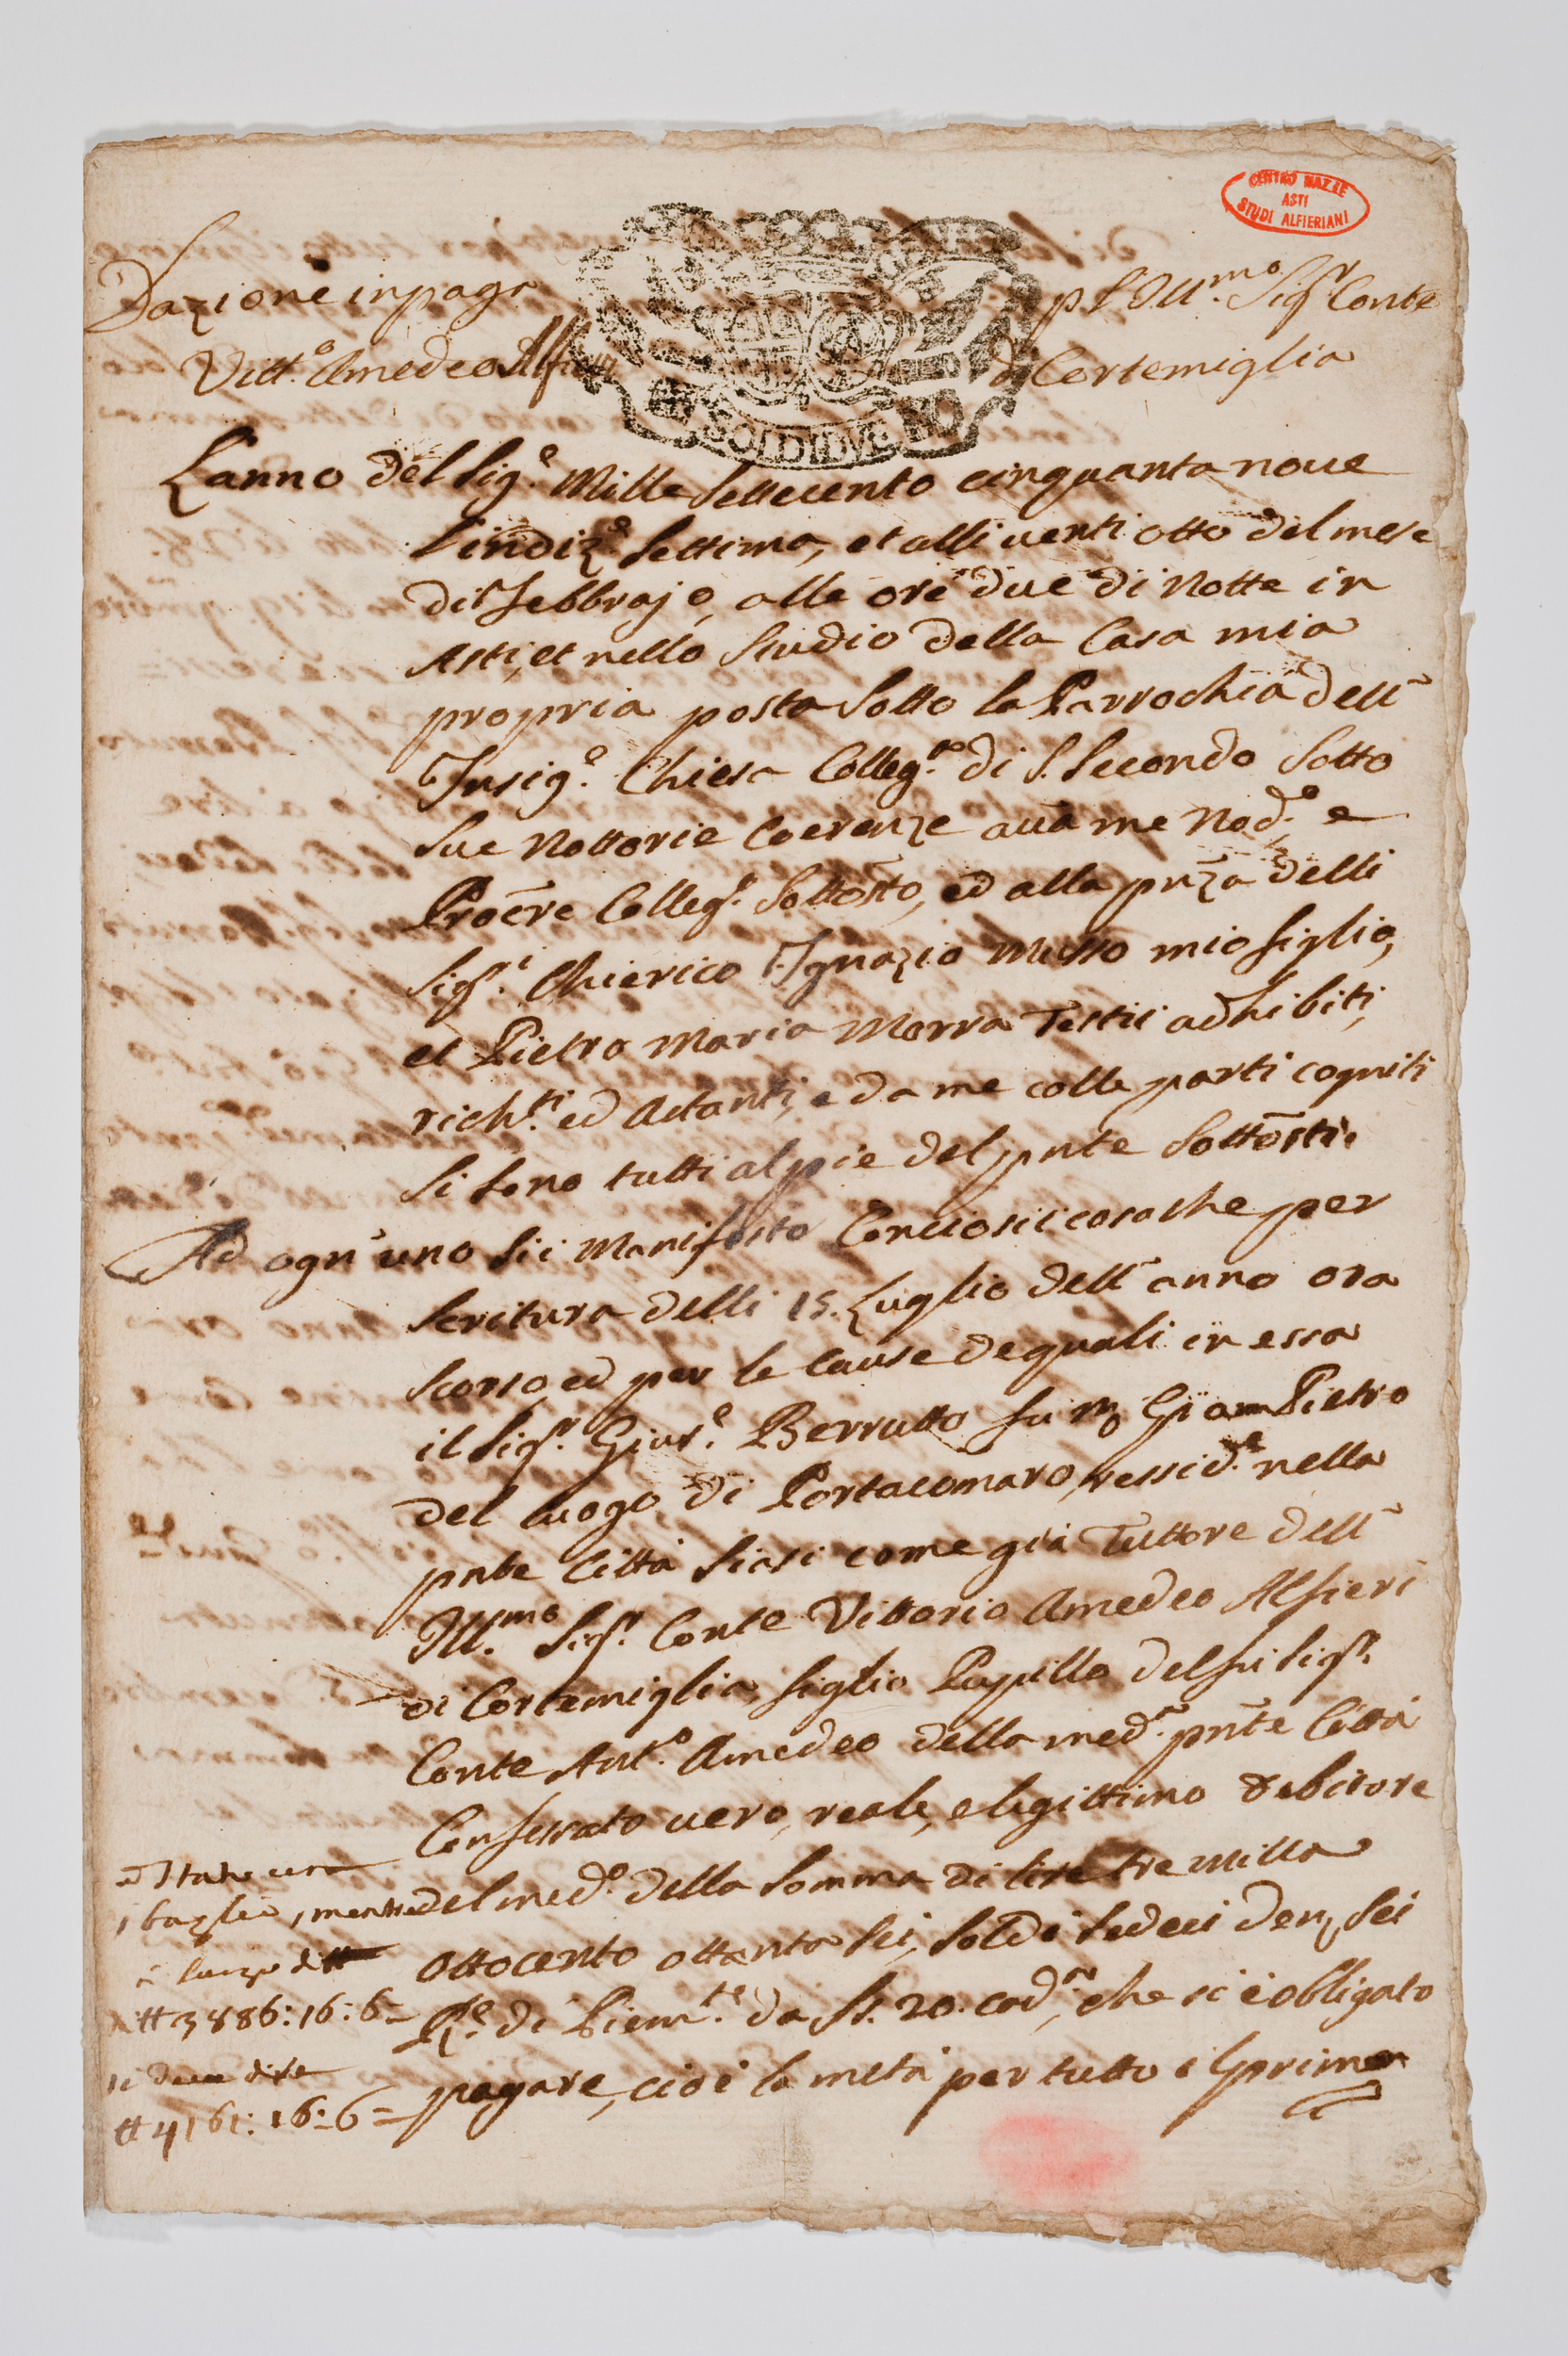 CENTRO NAZ.LE
ASTI
STUDI ALFIERIANI
Dazione in paga p l'Ill.mo Sigr. Conte
Vitt.o Amedeo Alfieri di Cortemiglia
SOLDI DVE
L'anno del Sig.e Mille Settecento cinquanta noue
l'indiz.e Settima, et alli uenti otto del mese
di Febbrajo, alle ore due di Notte in
Asti, et nello Studio della Casa mia
propria posta Sotto la Parrochia dell'
Insig.e Chiesa Colleg.ta di S. Secondo Sotto
Sue Nottorie Coerenze auã me Nod.o e
Procre Colleg.o Sottosto, ed alla pnza delli
Sigr.i Chierico Ignazio Musso mio figlio,
et Pietro Maria Morra Testii adhibiti,
rich.ti ed Astanti, e da me colle parti cogniti
Si sono tutti al pie del pnte Sottosti.
Ad ogn'uno sii Manifesto Conciosiicosache per
Scritura delli 15. Luglio dell'anno ora
Scorso, ed per le Cause de quali in essa
il Sigr. Gius.e Berrutto fu m Giam Pietro
del luogo di Portacomaro, ressid.e nella
pnte Città Siasi come già Tuttore dell'
Ill.mo Sigr. Conte Vittorio Amedeo Alfieri
di Cortemiglia, figlio Pupillo del fu Sigr.
Conte Ant.o Amedeo della med.a pnte Città
Confessato uero, reale, e legittimo debitore
del med.o della Somma di lire tre milla
ottocento ottanta sei, Soldi Sedeci den. Sei
R.e di Piem.te da Ss. 20. cad.a, che si è obligato
pagare, cioè la metà per tutto il primo
sbaglio, mentre
3886:16:6=
si deue dire
4161:16:6=